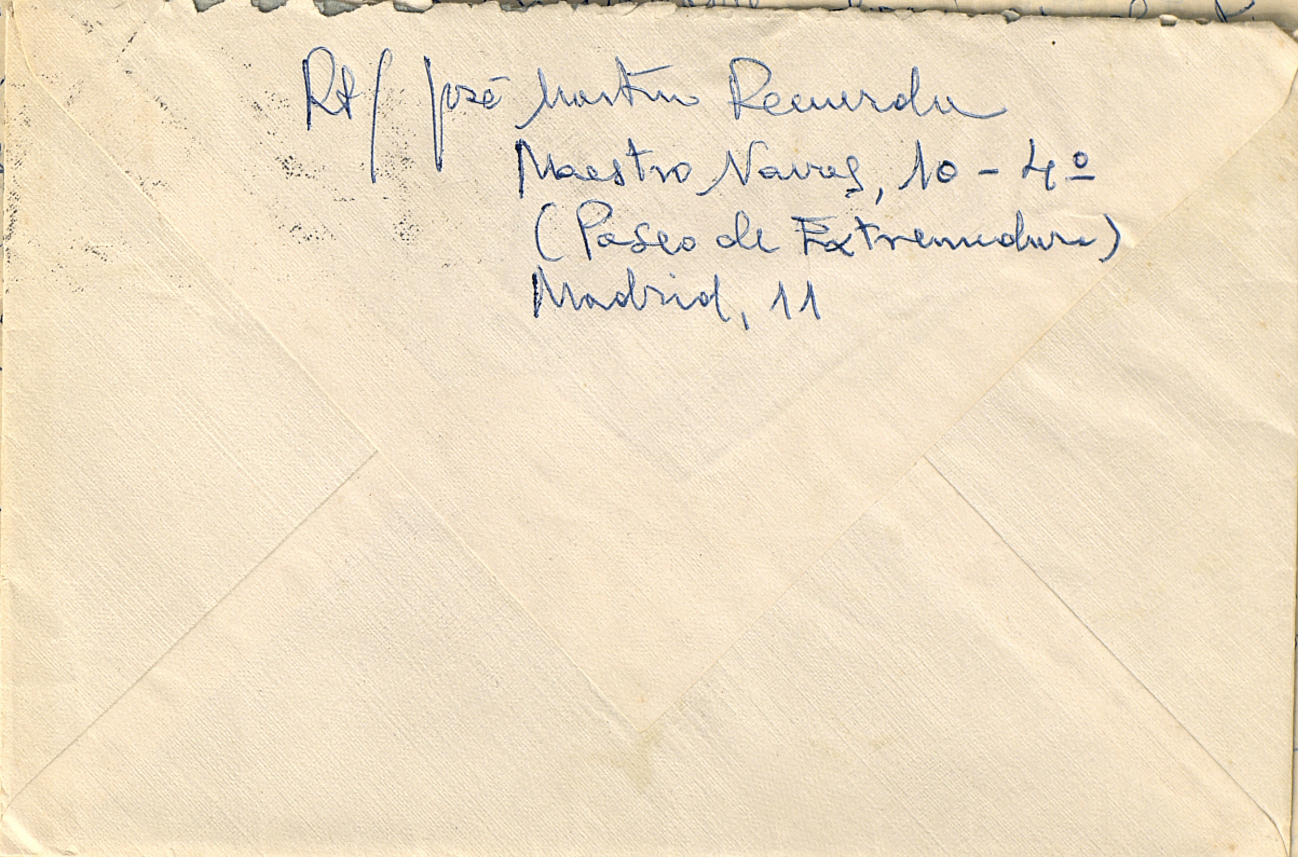 Rt/ José Martín Recuerda
Maestro Navas, 10 - 4º
(Paseo de Extremadura)
Madrid, 11